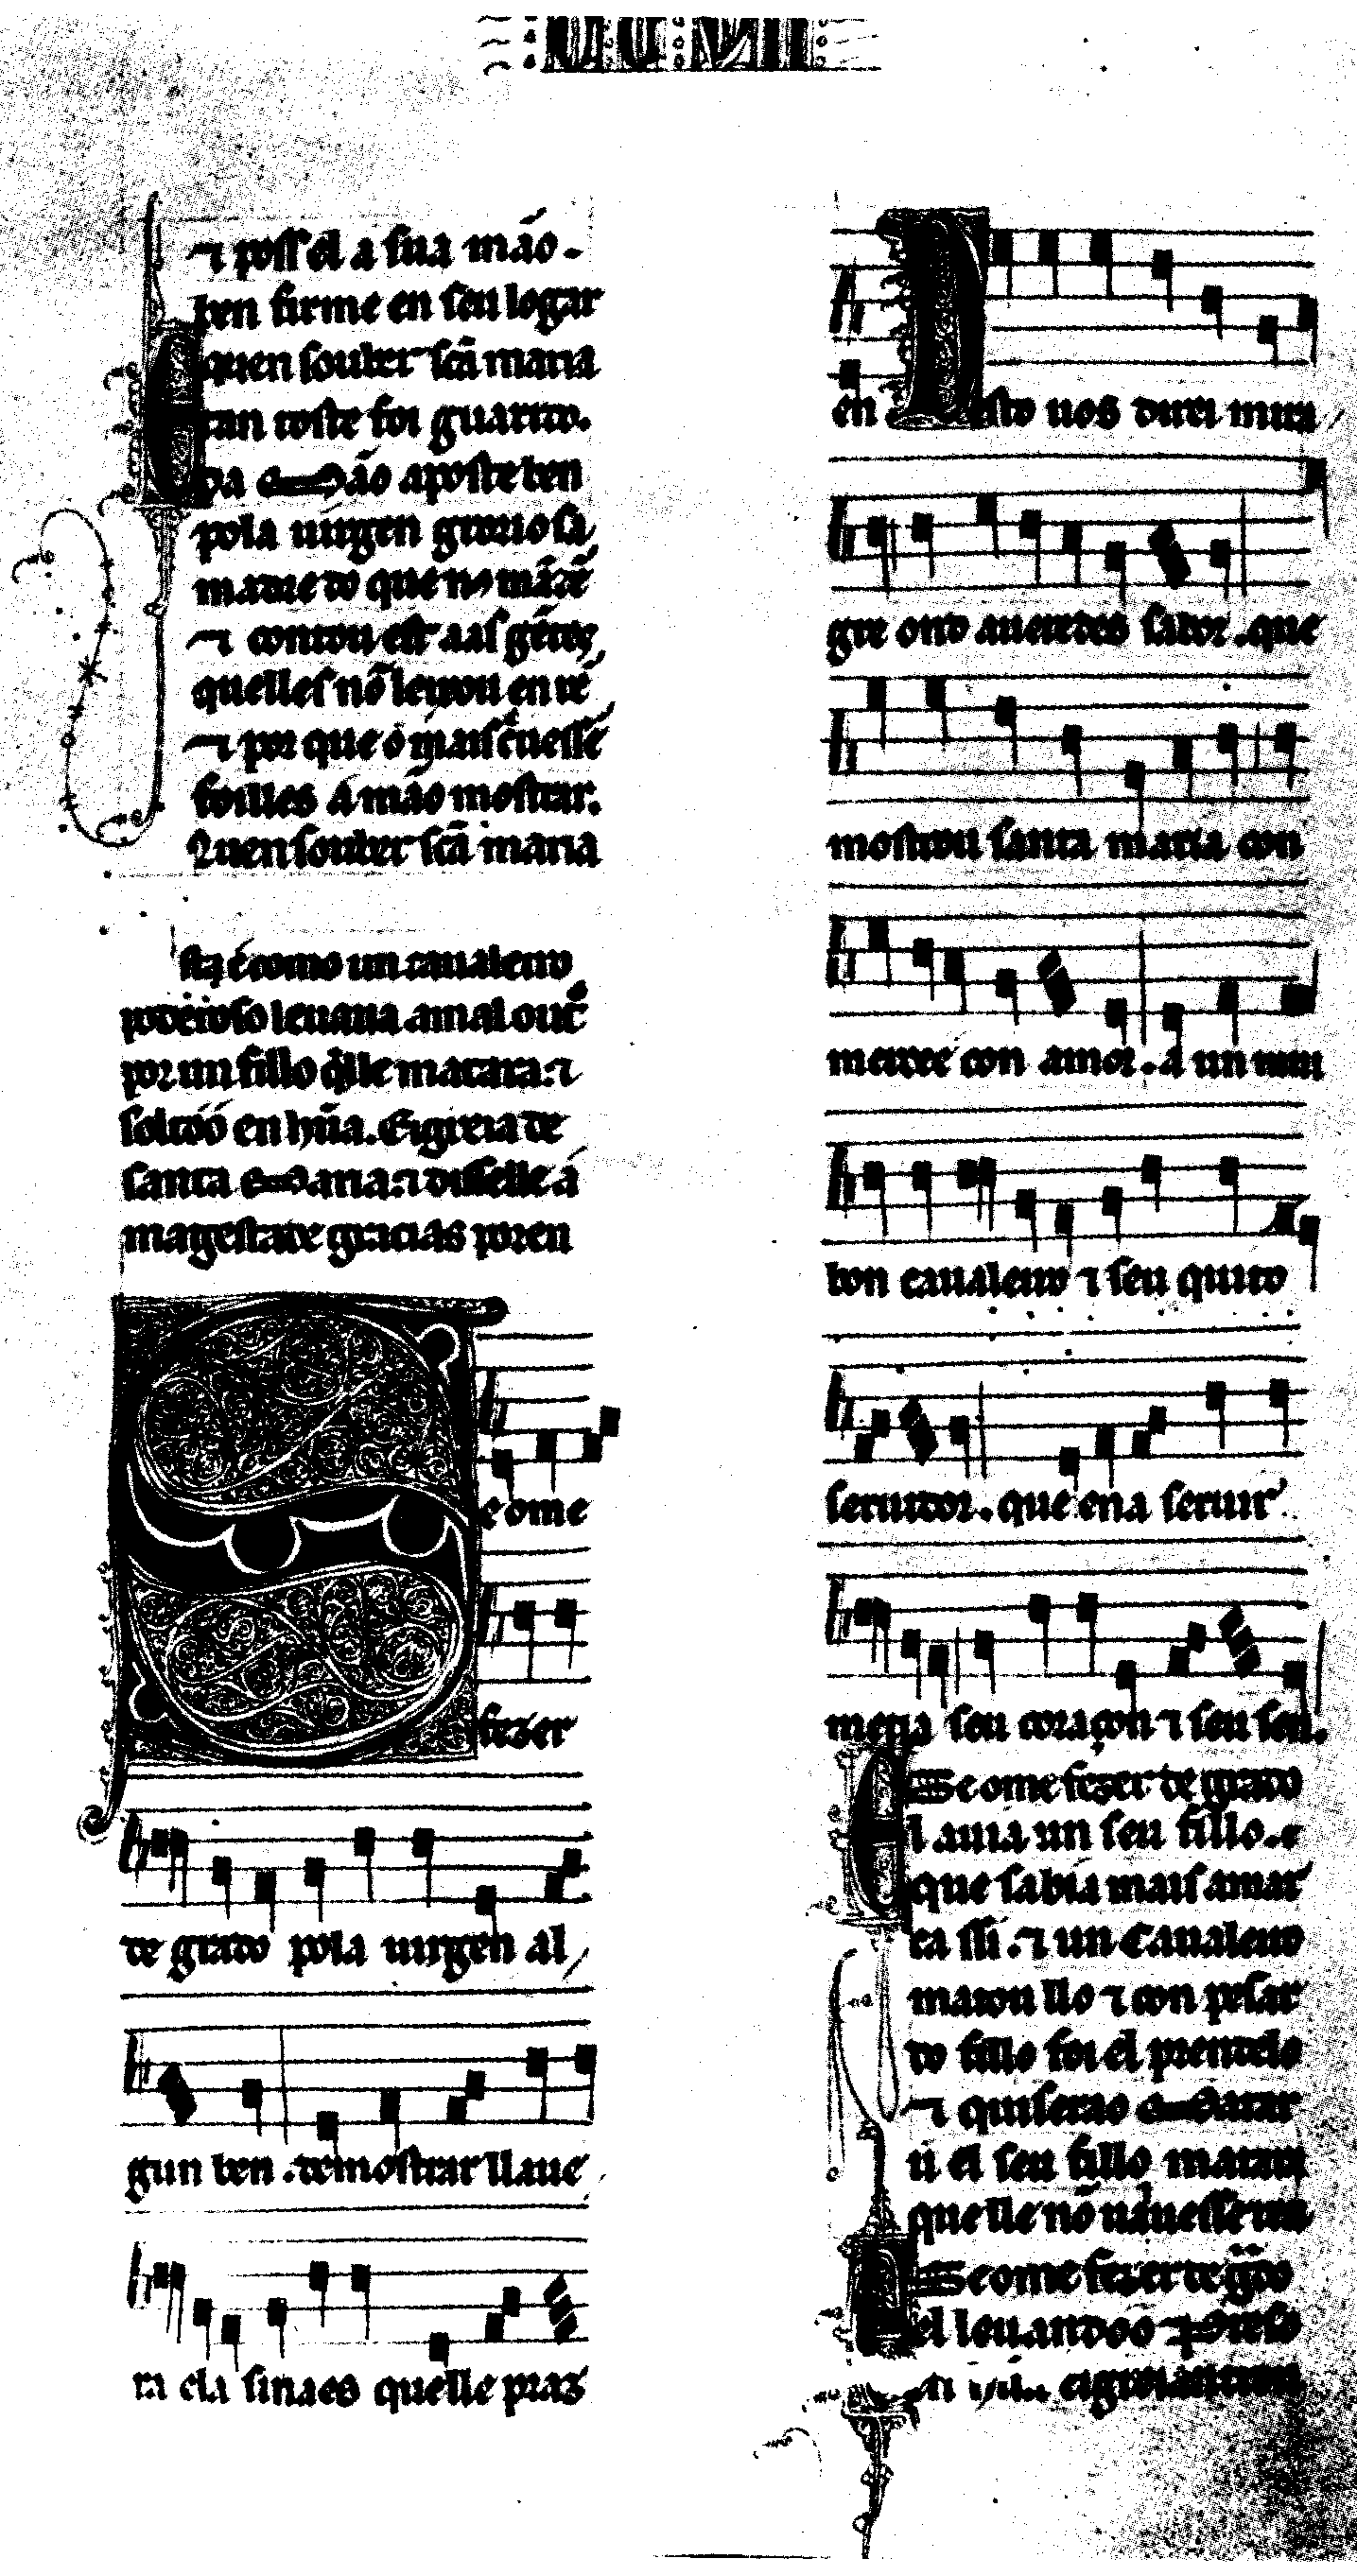 ⁊ poss el a sua mão.
ben firme en seu logar
quen souber sc̃a maria
E tan toste foi guarido.
da Mão aposte ben
pola uirgen groriosa
madre do que nõ mã tẽ
⁊ contou est aas gẽtes
quelles nõ leixou en rẽ
⁊ por que o mais creuessẽ
foilles a mão mostrar.
Quen souber sc̃a maria
Esta é como un caualeiro
poderoso leuaua a mal outr̃
por un fillo q̃lle matara. ⁊
soltóó en hũa. Eigreia de
santa Maria. ⁊ disselle á
magestade gracias poren
Se ome
fezer
de grado pola uirgen al
gun ben. demostrar llaue
ra ela sinaes quelle praz
en Desto uos direi mira
gre ond aueredes sabor. que
mostrou santa maria con
mercee con amor. a un mui
bon caualeiro ⁊ seu quito
seruidor. que ena seruir
metia seu coraçon ⁊ seu sen.
Se ome fezer de grado
El auia un seu fillo. e
que sabia mais amar
ca ssi. ⁊ un Caualeiro
matou llo ⁊ con pesar
do fillo foi el prendelo
⁊ quiserao Matar
u el seu fillo matara
quelle nõ uauesse ren
Se ome fezer de g̃do
el leuandoo preso
eigreia entrou